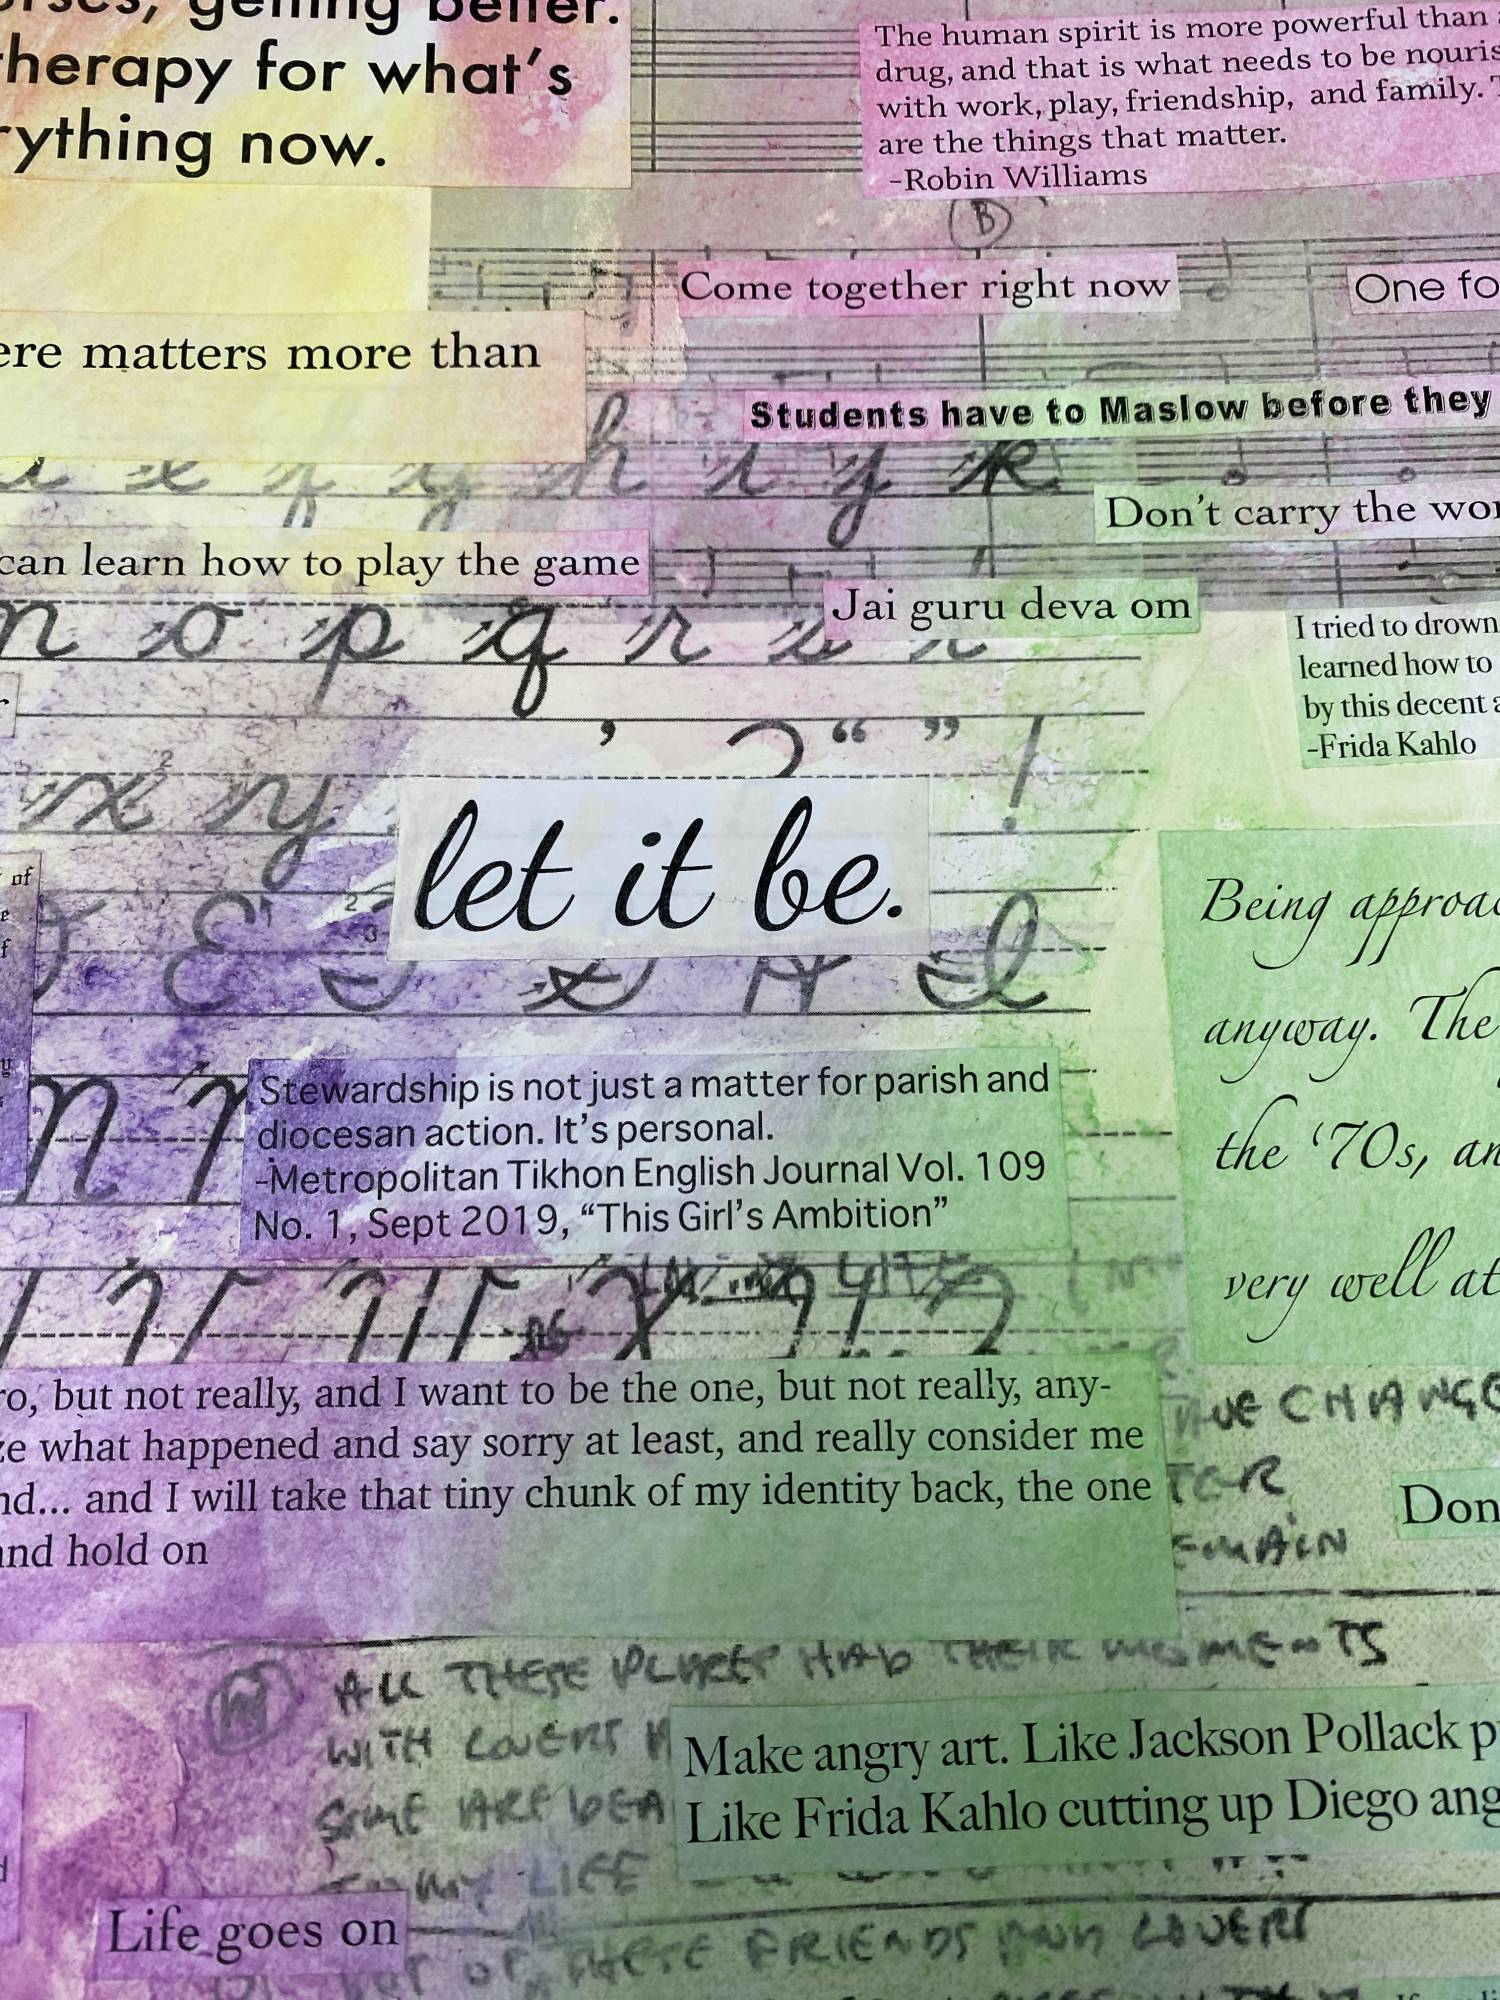 getting better.
therapy for what's
rything now.
The human spirit is more powerful than
drug, and that is what needs to be nouris
with work, play, friendship, and family. T
are the things that matter.
-Robin Williams
B
Come together right now
One fo
ere matters more than
Students have to Maslow before they
h i j k
Don't carry the wor
can learn how to play the game
Jai guru deva om
n o p q r s
I tried to drown
learned how to
by this decent a
-Frida Kahlo
' ? “ ” !
x y
let it be.
of
Being approac
anyway. The
the '70s, an
very well at
Stewardship is not just a matter for parish and
diocesan action. It's personal.
-Metropolitan Tikhon English Journal Vol. 109
No. 1, Sept 2019, “This Girl's Ambition”
ro, but not really, and I want to be the one, but not really, any-
ze what happened and say sorry at least, and really consider me
nd... and I will take that tiny chunk of my identity back, the one
and hold on
CHANGE
EMAIN
Don
ALL THESE PLACES HAD THEIR MOMENTS
WITH LOVERS
SOME ARE DEA
Make angry art. Like Jackson Pollack p
Like Frida Kahlo cutting up Diego ang
MY LIFE
Life goes on
OF THESE FRIENDS AND LOVERS